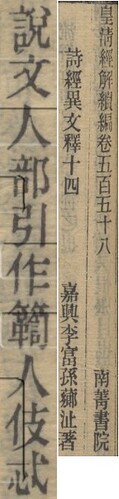 皇清經解續編卷五百五十八 南菁書院
詩經異文釋十四 嘉興李富孫薌沚著
說文人部引作人伎忒